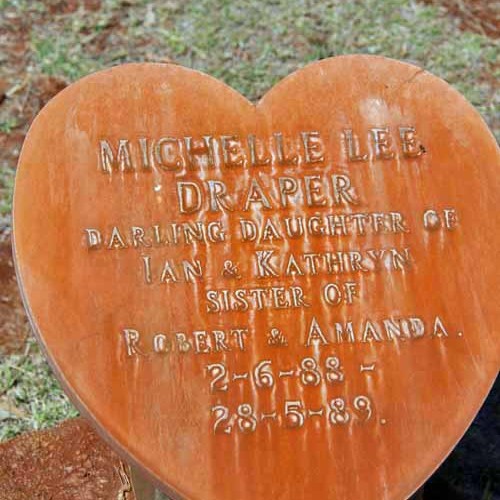 MICHELLE LEE
DRAPER
DARLING DAUGHTER OF
IAN & KATHRYN
SISTER OF
ROBERT & AMANDA.
2-6-88 -
28-5-89.